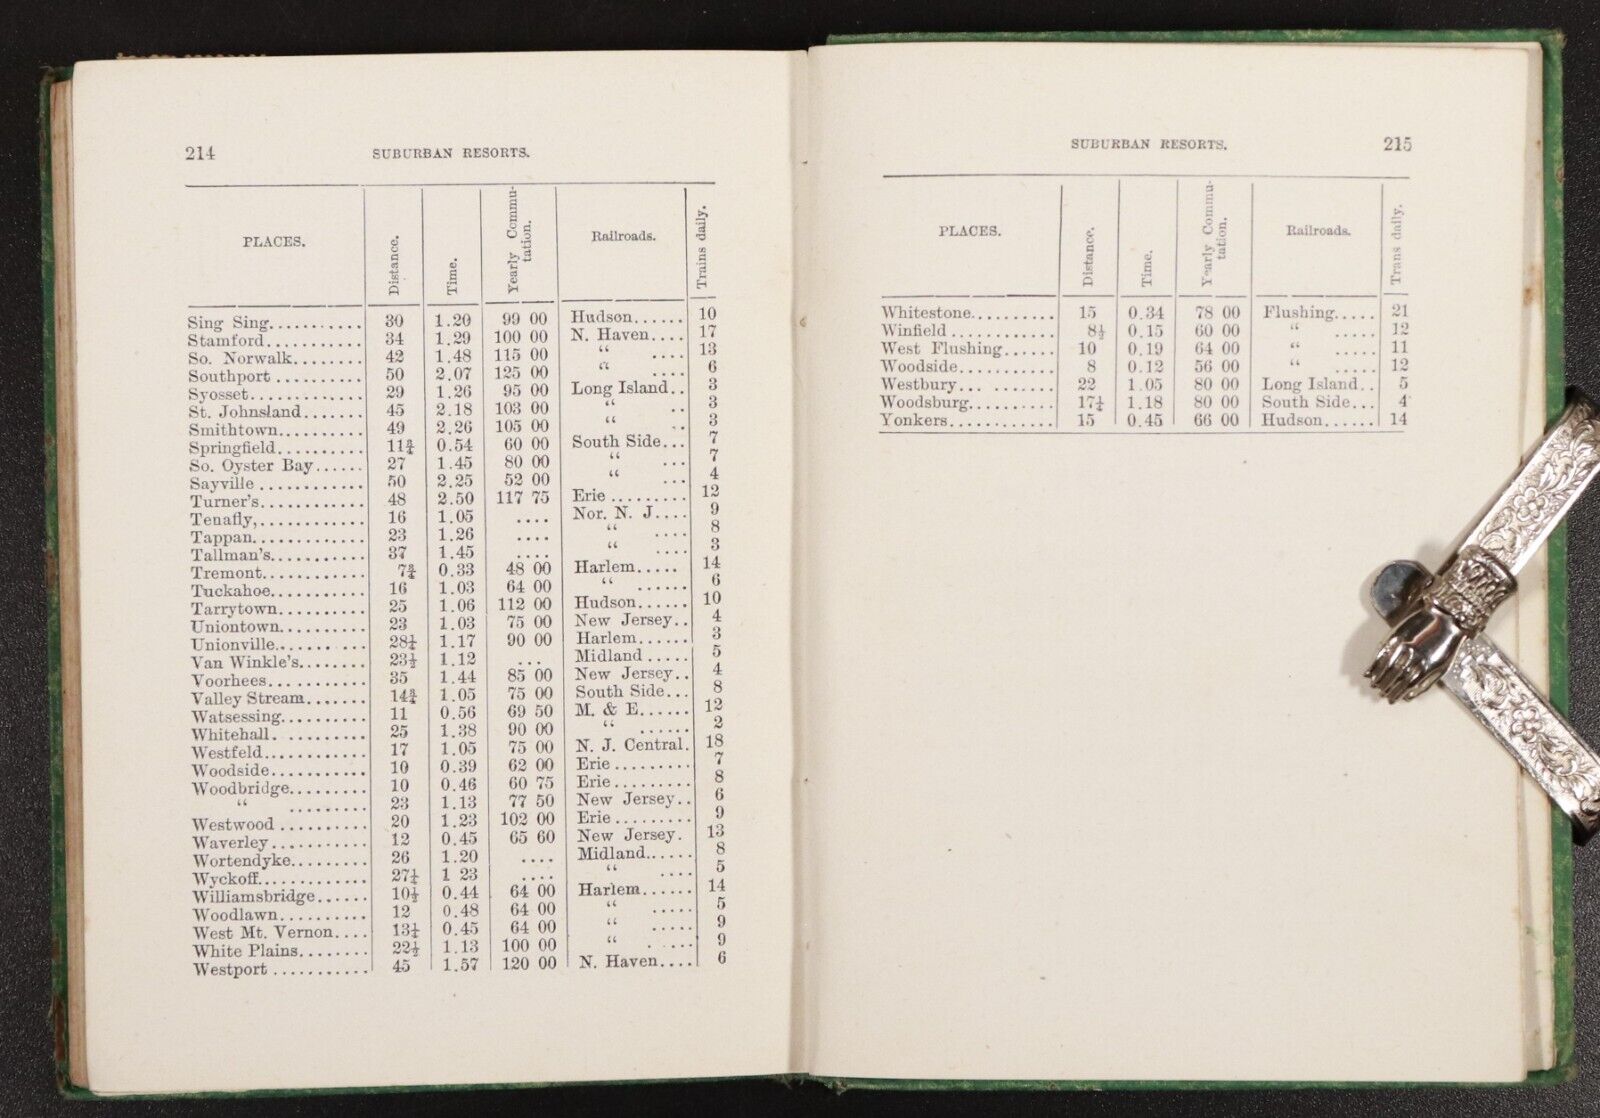 214 SUBURBAN RESORTS.
PLACES. Distance. Time. Yearly Commutation. Railroads. Trains daily.
Sing Sing........... 30 1.20 99 00 Hudson...... 10
Stamford........... 34 1.29 100 00 N. Haven.... 17
So. Norwalk........ 42 1.48 115 00 “ .... 13
Southport .......... 50 2.07 125 00 “ .... 6
Syosset............. 29 1.26 95 00 Long Island.. 3
St. Johnsland....... 45 2.18 103 00 “ .. 3
Smithtown.......... 49 2.26 105 00 “ .. 3
Springfield.......... 11¾ 0.54 60 00 South Side... 7
So. Oyster Bay...... 27 1.45 80 00 “ ... 7
Sayville ............ 50 2.25 52 00 “ ... 4
Turner's............ 48 2.50 117 75 Erie ......... 12
Tenafly,............ 16 1.05 .... Nor. N. J.... 9
Tappan............. 23 1.26 .... “ .... 8
Tallman's........... 37 1.45 .... “ .... 3
Tremont............ 7¾ 0.33 48 00 Harlem..... 14
Tuckahoe........... 16 1.03 64 00 “ ...... 6
Tarrytown.......... 25 1.06 112 00 Hudson...... 10
Uniontown.......... 23 1.03 75 00 New Jersey.. 4
Unionville.......... 28¼ 1.17 90 00 Harlem...... 3
Van Winkle's........ 23½ 1.12 ... Midland ..... 5
Voorhees........... 35 1.44 85 00 New Jersey.. 4
Valley Stream....... 14¾ 1.05 75 00 South Side... 8
Watsessing.......... 11 0.56 69 50 M. & E...... 12
Whitehall. ......... 25 1.38 90 00 “ ...... 2
Westfeld............ 17 1.05 75 00 N. J. Central. 18
Woodside........... 10 0.39 62 00 Erie ......... 7
Woodbridge......... 10 0.46 60 75 Erie ......... 8
“ ......... 23 1.13 77 50 New Jersey.. 6
Westwood .......... 20 1.23 102 00 Erie ......... 9
Waverley........... 12 0.45 65 60 New Jersey. 13
Wortendyke......... 26 1.20 .... Midland...... 8
Wyckoff............. 27¼ 1 23 .... “ .... 5
Williamsbridge...... 10½ 0.44 64 00 Harlem...... 14
Woodlawn.......... 12 0.48 64 00 “ ..... 5
West Mt. Vernon.... 13¼ 0.45 64 00 “ ..... 9
White Plains........ 22½ 1.13 100 00 “ ..... 9
Westport ........... 45 1.57 120 00 N. Haven.... 6
SUBURBAN RESORTS. 215
PLACES. Distance. Time. Yearly Commutation. Railroads. Trans daily.
Whitestone.......... 15 0.34 78 00 Flushing..... 21
Winfield ............ 8½ 0.15 60 00 “ ..... 12
West Flushing...... 10 0.19 64 00 “ ..... 11
Woodside........... 8 0.12 56 00 “ ..... 12
Westbury... ....... 22 1.05 80 00 Long Island.. 5
Woodsburg.......... 17¼ 1.18 80 00 South Side... 4
Yonkers............ 15 0.45 66 00 Hudson...... 14